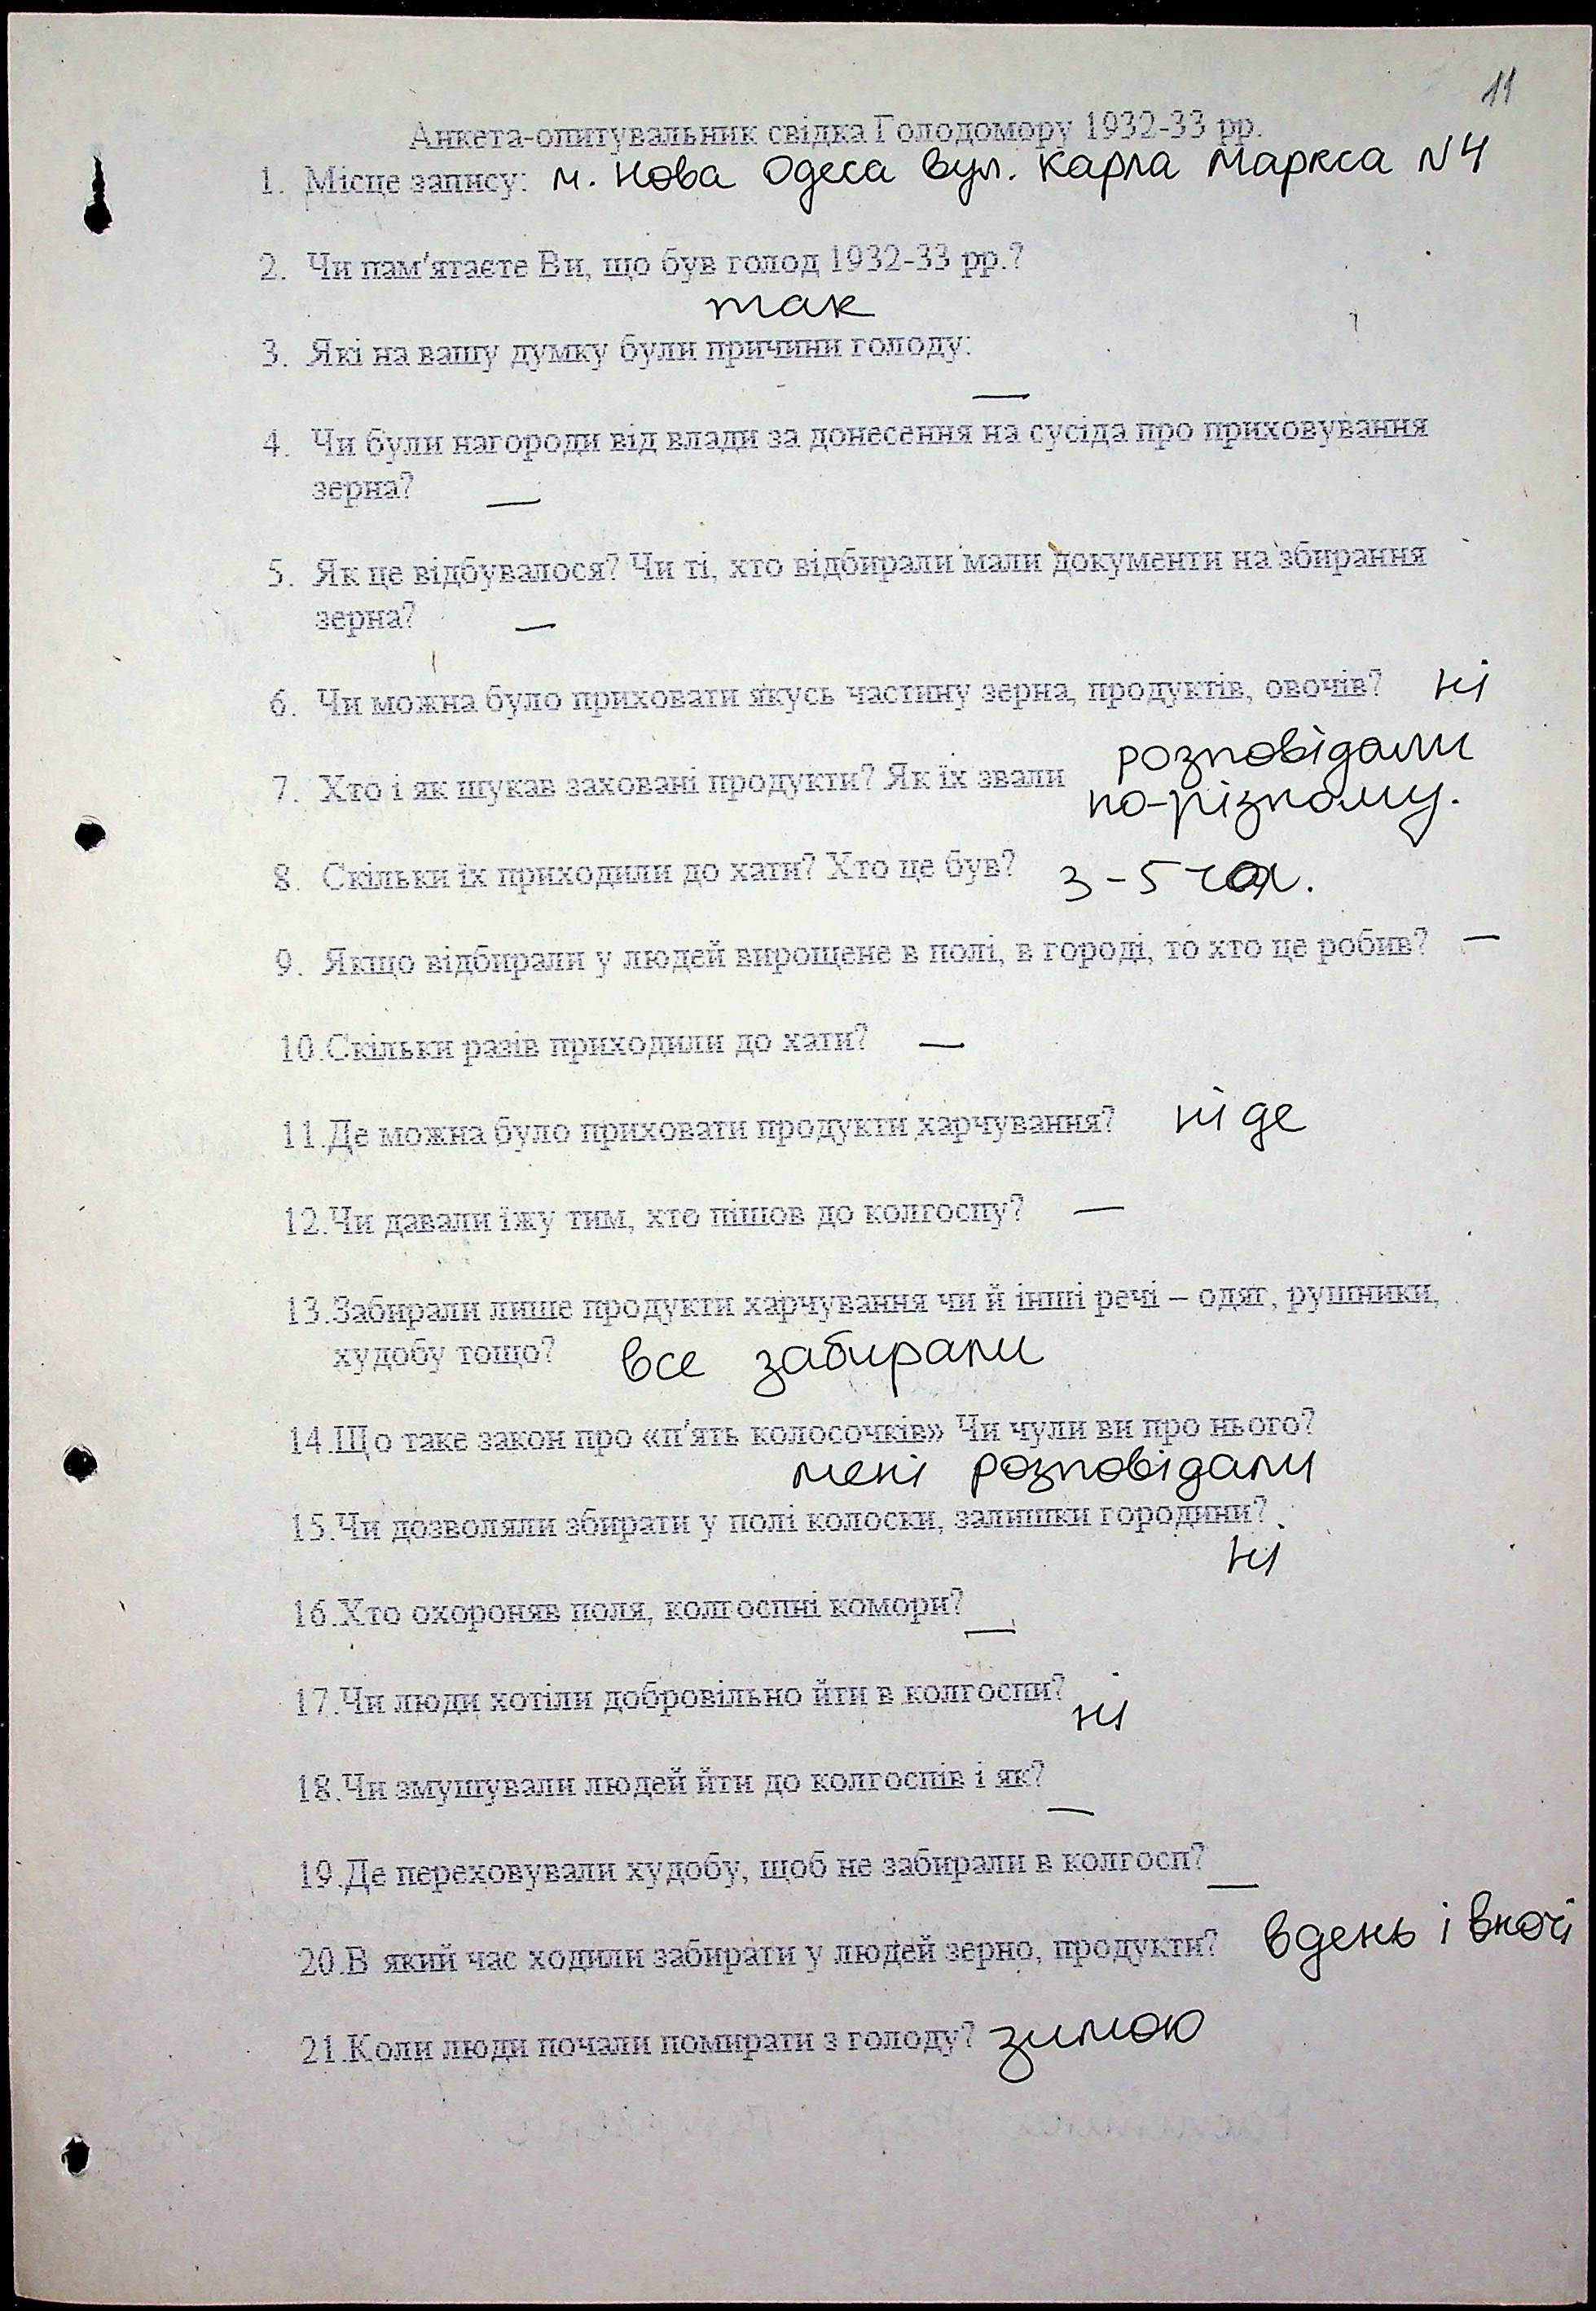 11
Анкета-опитувальник свідка Голодомору 1932-33 рр.
1. Місце запису: м. Нова Одеса вул. Карла Маркса N4
2. Чи пам'ятаєте Ви, що був голод 1932-33 рр.?
так
3. Які на вашу думку були причини голоду:
—
4. Чи були нагороди від влади за донесення на сусіда про приховування
зерна? —
5. Як це відбувалося? Чи ті, хто відбирали мали документи на збирання
зерна? —
6. Чи можна було приховати якусь частину зерна, продуктів, овочів? ні
7. Хто і як шукав заховані продукти? Як їх звали розповідали
по-різному.
8. Скільки їх приходили до хати? Хто це був? 3-5 чол.
9. Якщо відбирали у людей вирощене в полі, в городі, то хто це робив? —
10.Скільки разів приходили до хати? —
11.Де можна було приховати продукти харчування? ніде
12.Чи давали їжу тим, хто пішов до колгоспу? —
13.Забирали лише продукти харчування чи й інші речі – одяг, рушники,
худобу тощо? все забирали
14.Що таке закон про «п'ять колосочків» Чи чули ви про нього?
мені розповідали
15.Чи дозволяли збирати у полі колоски, залишки городини?
ні
16.Хто охороняв поля, колгоспні комори? —
17.Чи люди хотіли добровільно йти в колгоспи? ні
18.Чи змушували людей йти до колгоспів і як? —
19.Де переховували худобу, щоб не забирали в колгосп? —
20.В який час ходили забирати у людей зерно, продукти? вдень і вночі
21.Коли люди почали помирати з голоду? зимою